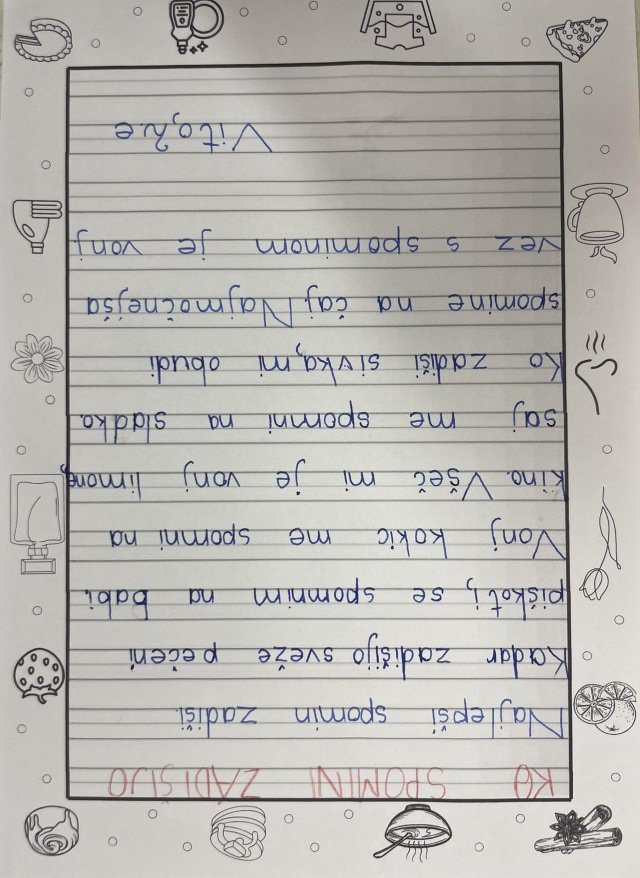 KO SPOMINI ZADIŠIJO
Najlepši spomin zadiši.
Kadar zadišijo sveže pečeni
piškoti, se spomnim na babi.
Vonj kokic me spomni na
kino. Všeč mi je vonj limone,
saj me spomni na sladko.
Ko zadiši sivka, mi obudi
spomine na čaj. Najmočnejša
vez s spominom je vonj
Vito, 2.e